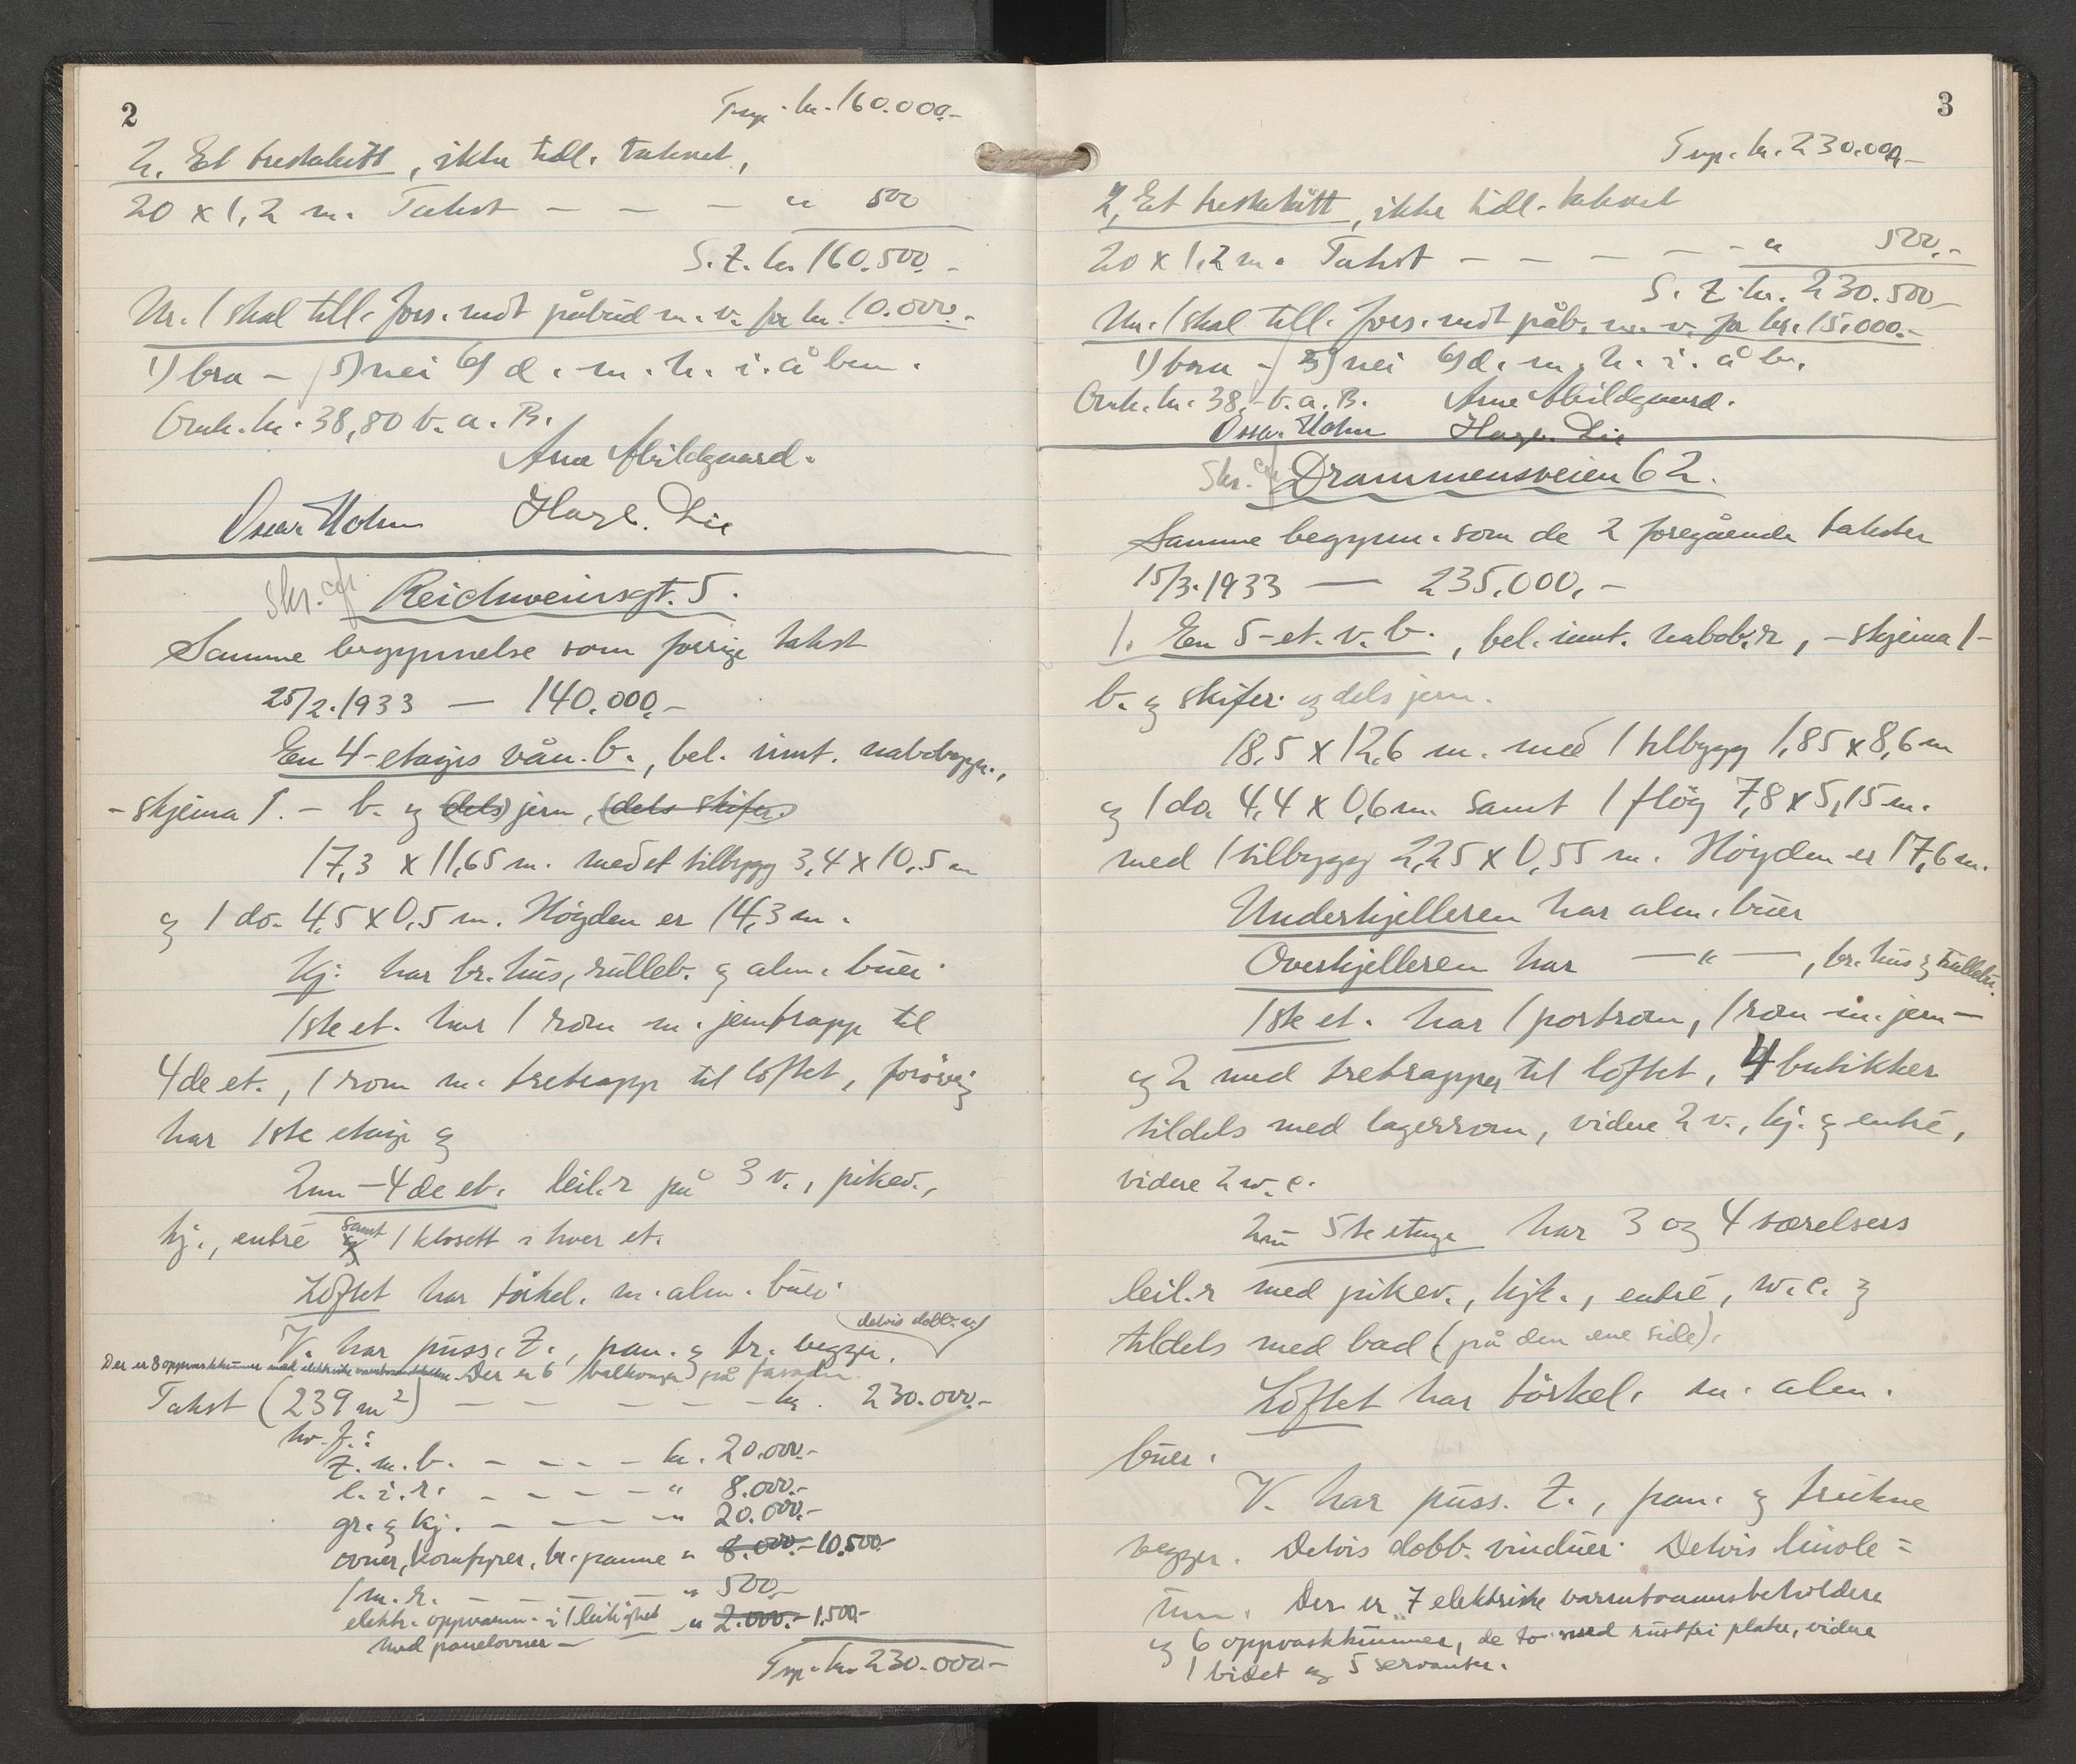 2
Trsp. kr. 160.000.-
2. Et treskakitt, ikke tidl. takset,
20 x 1,2 m. Takst - - - " 500
S. t. kr. 160.500.-
Nr. 1 skal till. fors. mot påbud m. v. for kr. 10.000.-
1) bra - 5) nei 6) d. m. h. i. å bem.
Omk. kr. 38,80 b. a. B.
Arne Abildgaard.
Oscar Holm Hagb. Lie
Skr. Reichweinsgt. 5.
Samme begynnelse som forrige takst
25/2.1933 — 140.000,-
En 4-etasjes vån. b., bel. innt. nabobygn.,
- skjema 1. - b. og (dels) jern, (dels skifer)
17,3 x 11,65 m. med et tilbygg 3,4 x 10,5 m
og 1 do. 4,5 x 0,5 m. Höyden er 14,3 m.
Kj. har br.hus, rulleb. og alm. buer.
1ste et. har 1 rom m. jerntrapp til
4de et., 1 rom m. tretrapp til loftet, forövrig
har 1ste etasje og
2nn - 4de et. leil.r på 3 v., pikev.,
kj., entré samt 1 klosett i hver et.
Loftet har törkel. m. alm. buer.
delvis dobb. v.
V. har puss. t., pan. og tr. vegger.
Der er 8 oppvaskkummer med elektriske varmtvannsbeholdere. Der er 6 balkonger på fasaden.
Takst (239 m2) - - - - - kr. 230.000.-
hv. f.:
t. m. b. - - - - kr. 20.000.-
l. i. r. - - - - " 8.000.-
gr. og kj. - - - - " 20.000.-
ovner, komfyrer, br.panne " 8.000.- 10.500.-
1 m. r. - - - " 500.-
elektr. oppvarm. i 1 leilighet " 2.000.- 1.500.-
med panelovner -
Trsp. kr. 230.000.-
3
Trsp. kr. 230.000.-
2. Et treskakitt, ikke tidl. takset
20 x 1,2 m. Takst - - - - - " 500.-
S. t. kr. 230.500.-
Nr. 1 skal till. fors. mot påb. m. v. for kr. 15.000.-
1) bra - 5) nei 6) d. m. h. i. å b.
Omk. kr. 38,- b. a. B. Arne Abildgaard.
Oscar Holm Hagb. Lie
Skr. Drammensveien 62.
Samme begynn. som de 2 foregående takster
15/3.1933 — 235.000,-
1. En 5-et. v. b., bel. innt. nabob.r, - skjema 1 -
b. og skifer og dels jern.
18,5 x 12,6 m. med 1 tilbygg 1,85 x 8,6 m
og 1 do. 4,4 x 0,6 m. samt 1 flög 7,8 x 5,15 m.
med 1 tilbygg 2,25 x 0,55 m. Höyden er 17,6 m.
Underkjelleren har alm. buer
Overkjelleren har — " —, br.hus og rulleb.
1ste et. har 1 portrom, 1 rom m. jern -
og 2 med tretrapper til loftet, 4 butikker
tildels med lagerrom, videre 2 v., kj. og entré,
videre 2 w.c.
2nn 5te etasje har 3 og 4 værelsers
leil.r med pikev., kjk., entré, w.c. og
tildels med bad (på den ene side).
Loftet har törkel. m. alm.
buer.
V. har puss. t., pan. og trukne
vegger. Delvis dobb. vinduer. Delvis linole =
um. Der er 7 elektriske varmtvannsbeholdere
og 6 oppvaskkummer, de to med rustfri plater, videre
1 bidet og 5 servanter.